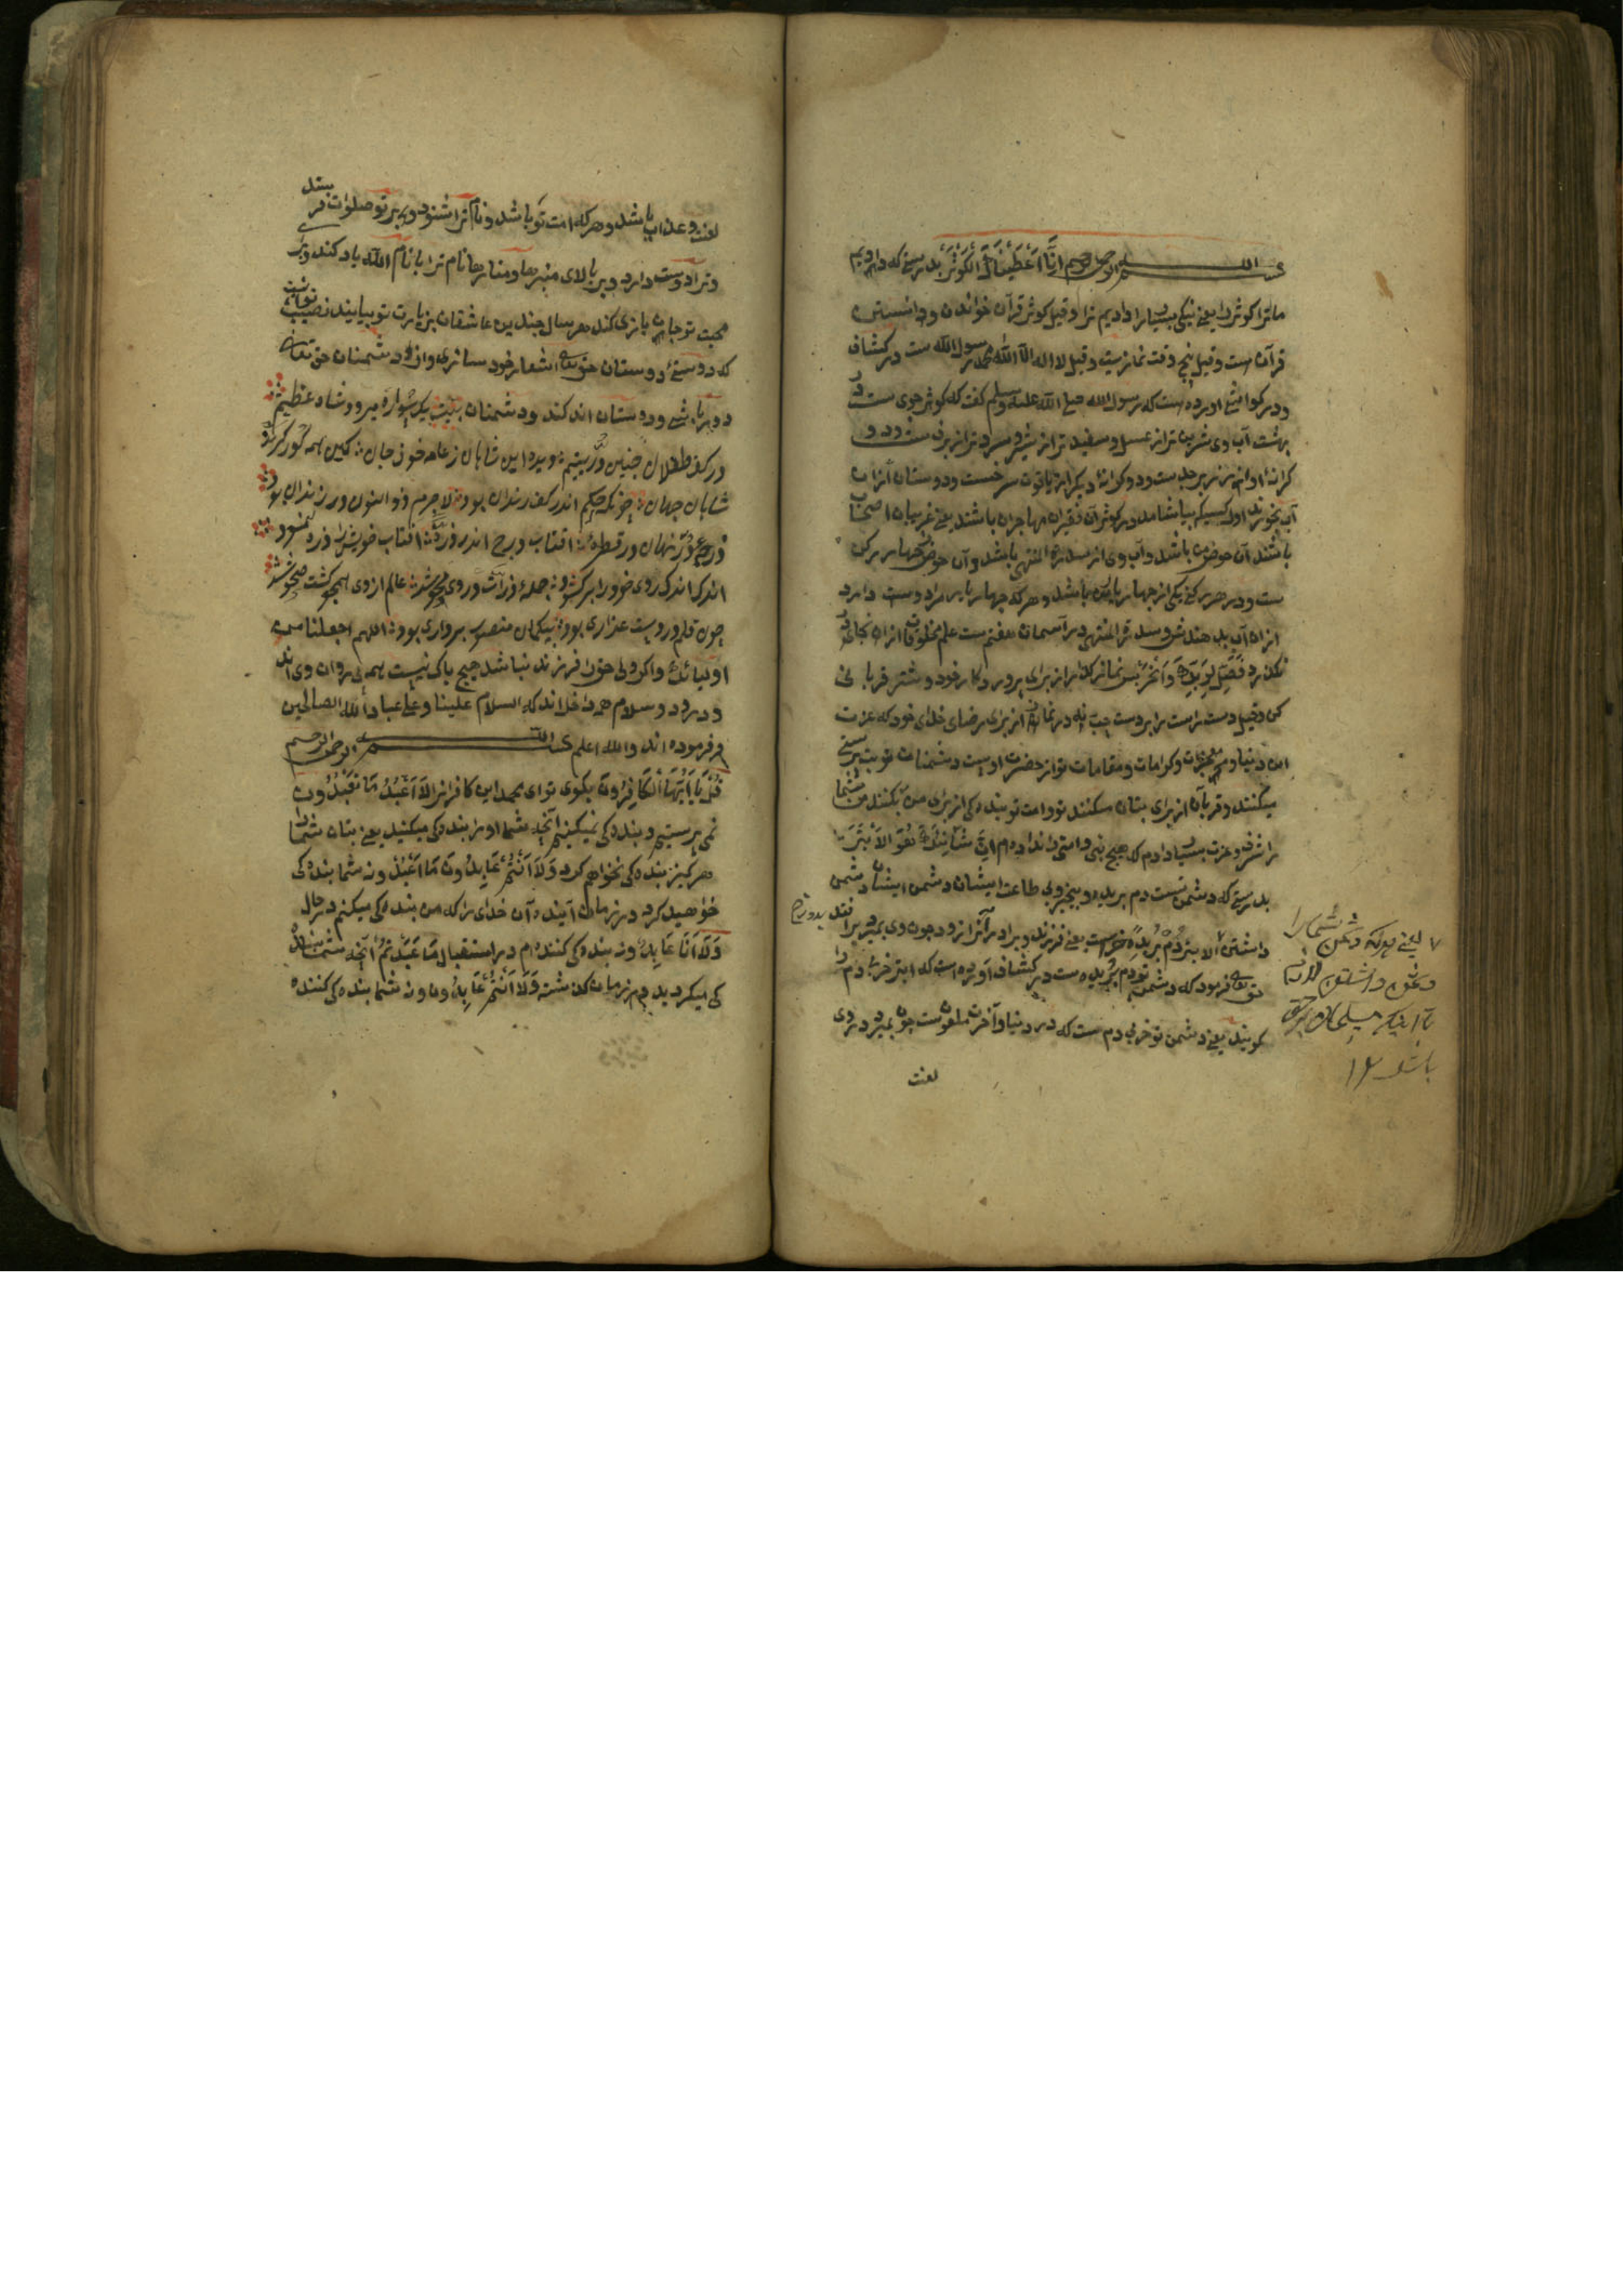 بسم الله الرحمن الرحيم اِنَّا اَعْطَيْنَاكَ الْكَوْثَرَ بدرستی که دادیم
ما ترا کوثر را یعنی نیکی بسیار را دادیم ترا و قیل کوثر قرآن خواندن و دانستن
قرآن ست و قیل پنج وقت نمازست و قیل لا اله الا الله محمد رسول الله ست در کشاف
و در کواشی اورده ست که رسول الله صلی الله علیه وسلم کفت که کوثر جوی ست در
بهشت آب وی شرین تر از عسل و سفید تر از شیر و سرد تر از برف ست و دو
کرانه او از زبرجد ست و دو کرانه دیکر از یاقوت سرخست و دوستان ازان
آب بخورند اول کسیکه بیاشامد در کوثر آن فقیران مهاجران باشند یعنی غریبان اصحاب
باشند آن حوض من باشد و آب وی از سدرة المنتهی باشد و آن حوض چهار رکن
ست و در هر رکنی یکی از چهار یار من باشد و هر که چهار یار مرا دوست دارد
ازان آب بدهندش و سدرة المنتهی در آسمان هفتم ست علم مخلوقات ازان بجای
نکذرد فَصَلِّ لِرَبِّكَ وَانْحَرْ پس نماز کذار از برای پروردکار خود و شتر قربانی
کن و قیل دست راست را بر دست چپ نه در نماز از برای رضای خدای خود که عزت
این دنیا و معجزات و کرامات و مقامات تو از حضرت اوست و دشمنان تو بت پرستی
میکنند و قربان از برای بتان میکنند تو و امت تو بنده کی از برای من بکنند من شما
را شرف و عزت بسیار دادم که هیچ نبی و امتی را نداده ام اِنَّ شَانِئَكَ هُوَ الْاَبْتَرُ
بدرستی که دشمن تست دم بریده و بیخیر و بی طاعت ایشان دشمن ایشان دشمن
داشتن الابتر دُم بُریده خرست یعنی فرزند و برادر آنرا نرود چون وی بمیرد برافتد
حق تعالی فرمود که دشمن تو دم بریده ست در کشاف آورده است که ابتر خر بی دم را
کویند یعنی دشمن تو خر بی دم ست که در دنیا و آخرت ملعون ست چون بمیرد در وی
لعنت
یعنی هر که دشمن شما را
دشمن داشتن
باشد ۱۲
لعنت و عذاب باشد و هر که امت تو باشد و نام ترا شنود وی بر تو صلوات فرستد
و ترا دوست دارد و بر بالای منبرها و منارها نام ترا با نام الله یاد کنند و در
محبت تو جان بازی کند هر سال چندین عاشقان بزیارت تو بیایند نصیب تو آنست
که دوستی دوستان حق تعالی شعار خود سازی و از دشمنان حق تعالی
دور باشی و دوستان اندکند و دشمنان بیت یک سواره میرود شاه عظیم
در کف طفلان چنین دُرّ یتیم ویره این شاهان ز عامه خوف جان کین همه کورکرند
شاهان جهان چونکه حکم اندر کف رندان بود لاجرم ذوالنون در زندان بود
دُرجِ دُرّ نهان در قطرهٔ افتاب و برج اندر ذرهٔ افتاب خویش را ذره نمود
اندک اندک روی خود را بر کشود جملهٔ ذرات در وی محو شد عالم از وی همچو کشت صحو شد
چون قلم در دست غداری بود بیکمان منصور بر داری بود اللهم اجعلنا من
اولیائک و اکر ولی حق را فرزند نباشد هیچ باکی نیست همه پی روان وی اند
و درود و سلام همه داخل اند که السلام علینا و علی عباد الله الصالحین
فرموده اند والله اعلم بسم الله الرحمن الرحیم
قُلْ يَا اَيُّهَا الْكَافِرُونَ بکوی تو ای محمد این کافرانرا لَا اَعْبُدُ مَا تَعْبُدُونَ
نمی پرستیم و بنده کی نمیکنیم آنچه شما او را بنده کی میکنید یعنی بتان شما را
هرکیز بنده کی نخواهم کرد وَلَا اَنْتُمْ عَابِدُونَ مَا اَعْبُدُ و نه شما بنده کی
خواهید کرد در زمان آینده آن خدای را که من بنده کی میکنم در حال
وَلَا اَنَا عَابِدٌ و نه بنده کی کننده ام در استقبال مَا عَبَدْتُمْ آنچه شما بنده
کی میکردید در زمان کذشته وَلَا اَنْتُمْ عَابِدُونَ و نه شما بنده کی کننده